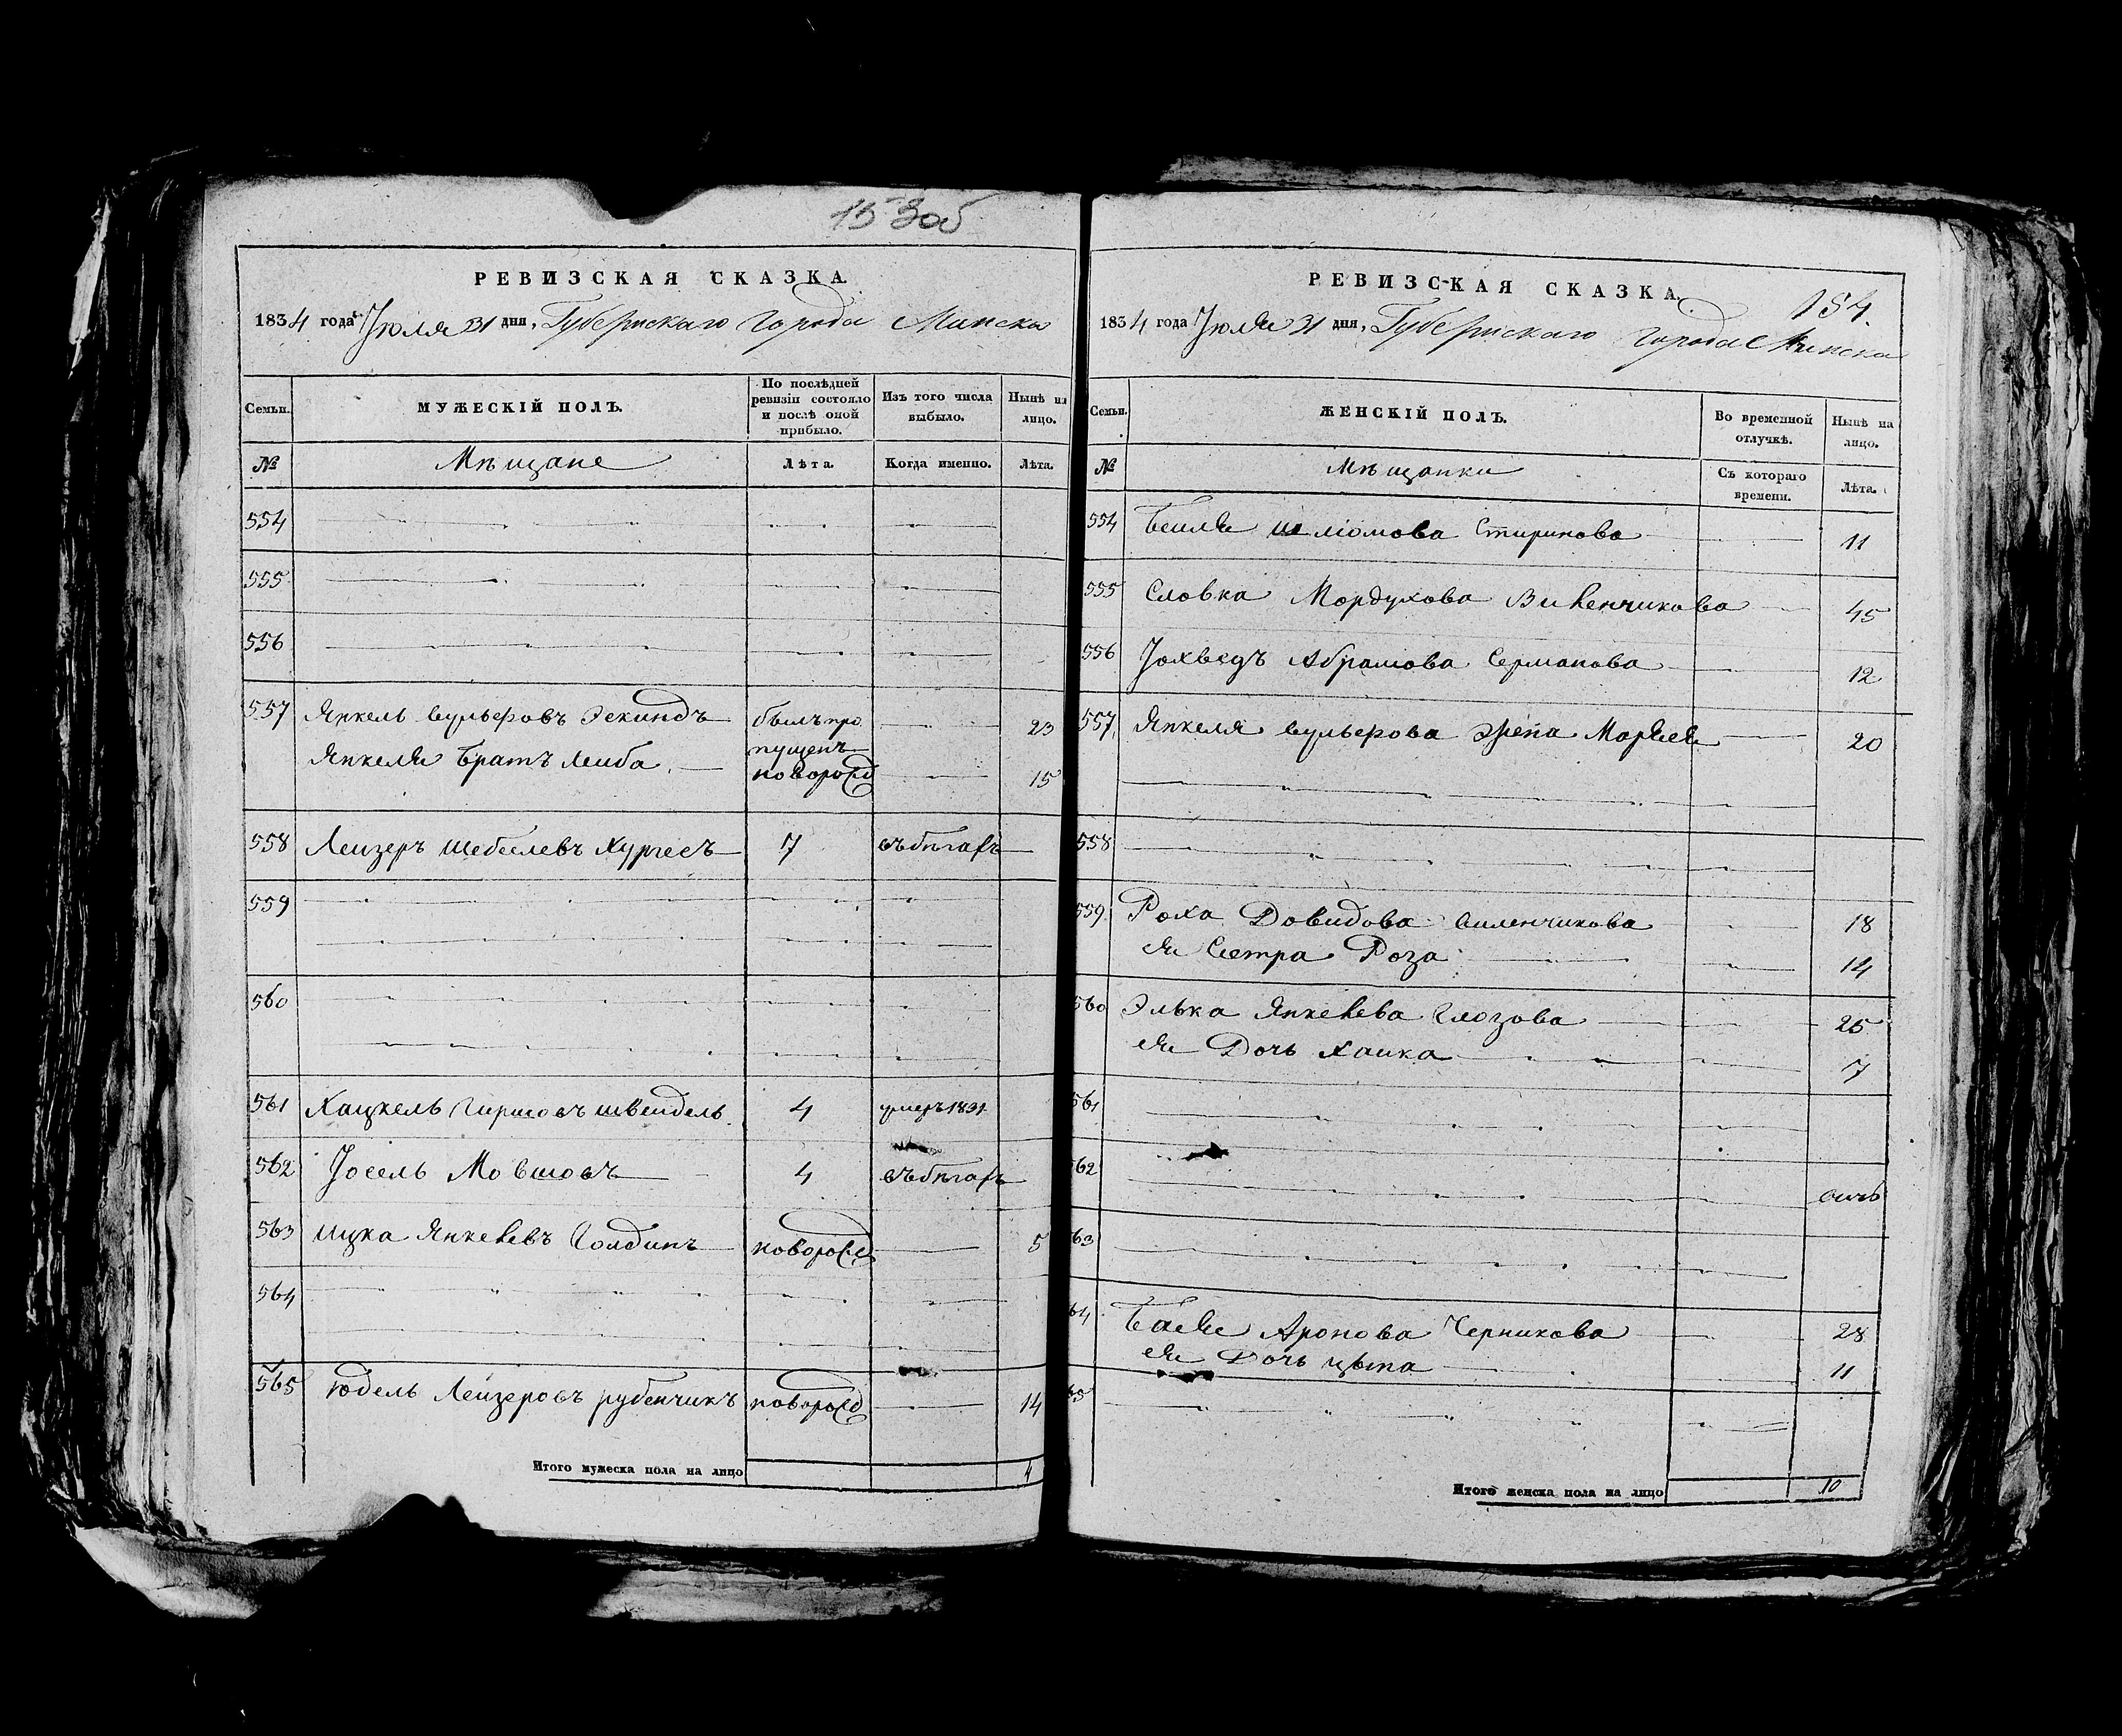 153об
РЕВИЗСКАЯ СКАЗКА
1834 года Іюля 31 дня, Губернскаго Города Минска
Семьи.
МУЖЕСКІЙ ПОЛЪ.
По послѣдней ревизіи состояло и послѣ оной прибыло.
Изъ того числа выбыло.
Нынѣ на лицо.
№
Мѣщане
Лѣта.
Когда именно.
Лѣта.
554
555
556
557 Янкель Вульфовъ Зекиндъ былъ про 23
пущенъ
Янкеля Братъ Леиба новорожд 15
558 Леизеръ Шебселевъ Хургесъ 7 въ бѣгахъ
559
560
561 Хацкель Гиршовъ Швендель 4 умеръ 1831
562 Іосель Мовшовъ 4 въ бѣгахъ
563 Ицка Янкелевъ Голдинъ новорожд 5
564
565 Юдель Лейзеровъ Рубенчикъ новорожд 14
Итого мужеска пола на лицо 4
РЕВИЗСКАЯ СКАЗКА
154.
1834 года Іюля 31 дня, Губернскаго Города Минска
Семьи.
ЖЕНСКІЙ ПОЛЪ.
Во временной отлучкѣ.
Нынѣ на лицо.
№
Мѣщанки
Съ котораго времени.
Лѣта.
554 Беиля Шліомова Стирикова 11
555 Словка Мордухова Виленчикова 45
556 Іохведъ Абрамова Серманова 12
557 Янкеля Вульфова жена Маряся 20
558
559 Роха Довидова Виленчикова 18
ея Сестра Роза 14
560 Элька Янкелева Глозова 25
ея Дочь Хаика 7
561
562
563
564 Бася Аронова Черникова 28
ея Дочь Цыпа 11
565
Итого женска пола на лицо 10